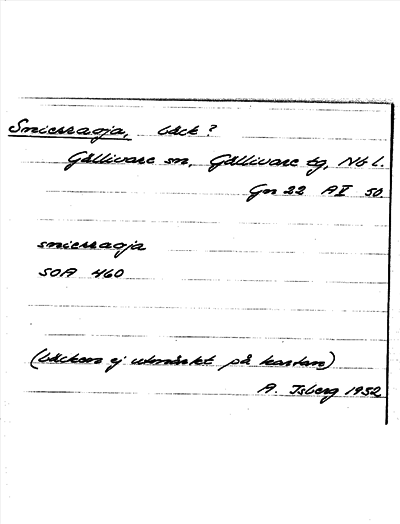 Snierragja, bäck?
Gällivare sn, Gällivare tg, Nb l.
Gn 22 A II 50.
snierragja
SOA 460
(bäcken ej utmärkt på kartan)
A. Isberg 1952